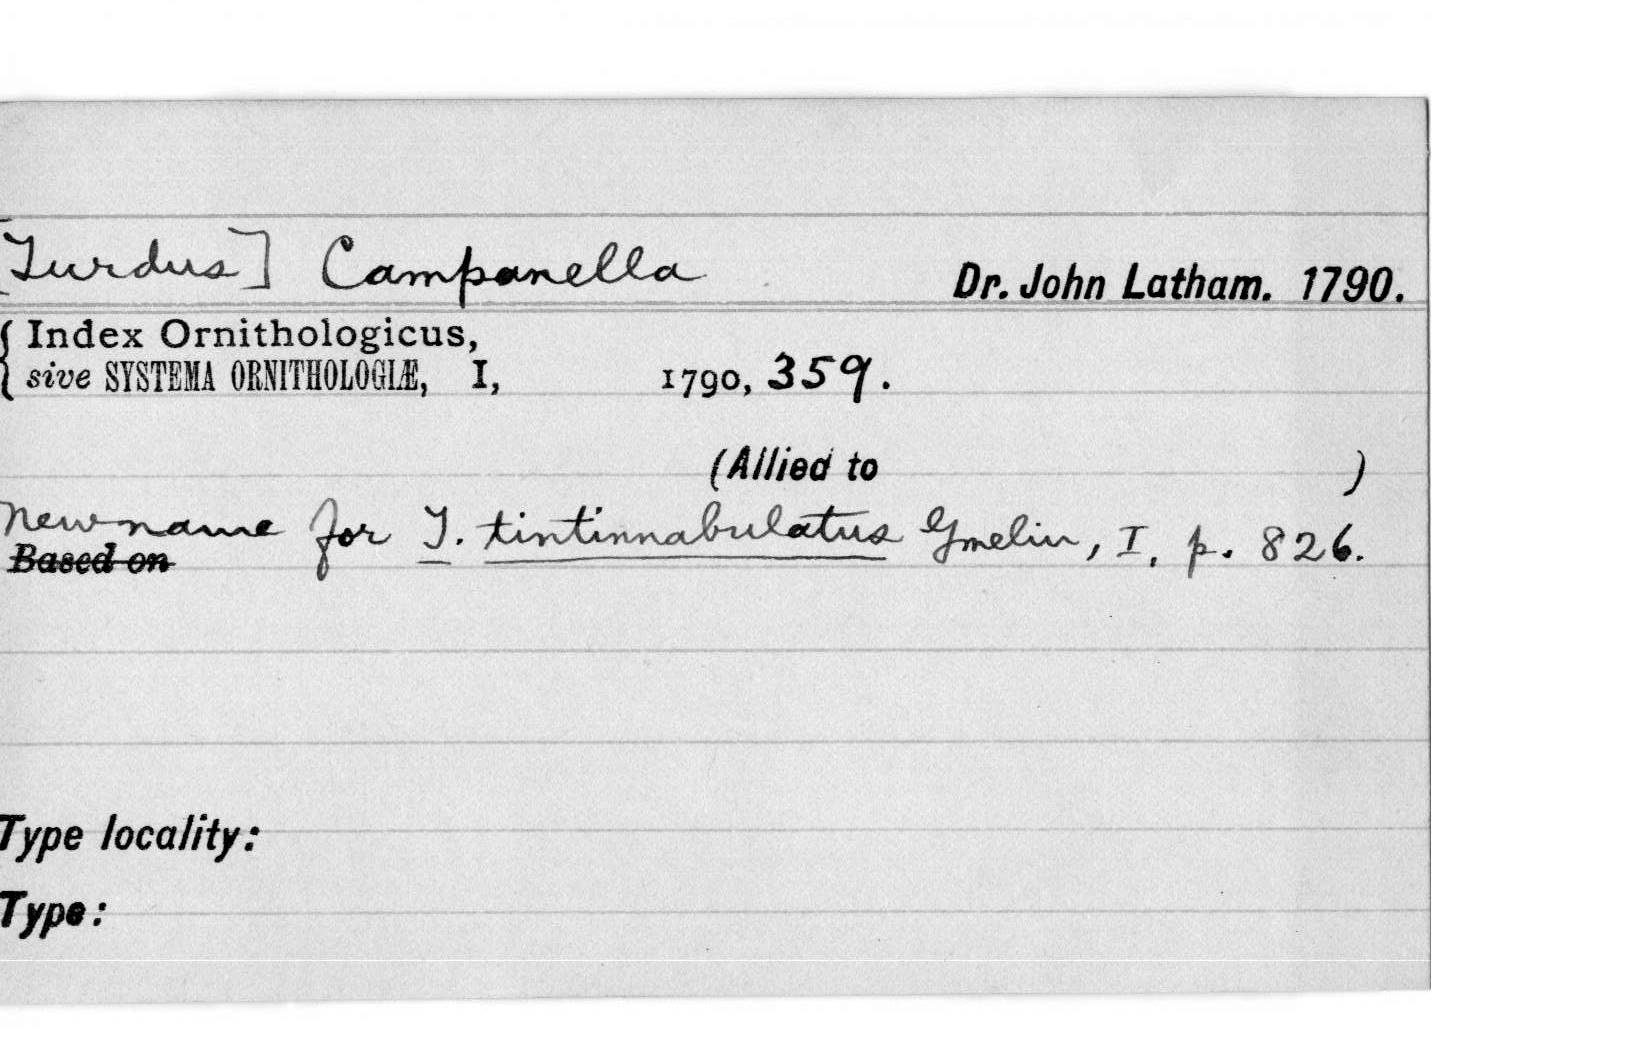 [Turdus] Campanella Dr. John Latham. 1790.
Index Ornithologicus,
sive SYSTEMA ORNITHOLOGIÆ, I, 1790, 359.
(Allied to )
New name for T. tintinnabulatus Gmelin, I, p. 826.
Based on
Type locality:
Type: